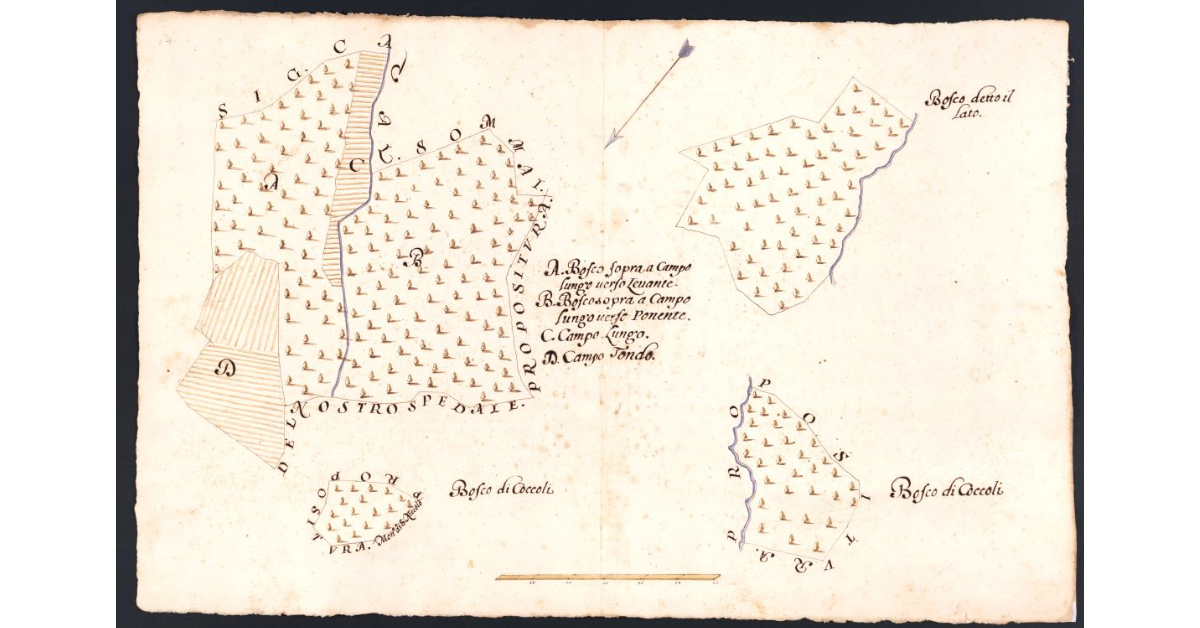 SIG. CAVAL. SOMMAI.
PROPOSITVRA.
DEL NOSTRO SPEDALE.
A
C
B
D
A. Bosco sopra a Campo
lungo verso Levante.
B. Bosco sopra a Campo
lungo verso Ponente.
C. Campo Lungo.
D. Campo Tondo.
Bosco detto il
Lato.
PROPOSITVRA.
Bosco di Coccoli
PROPOSITVRA.
Bosco di Coccoli